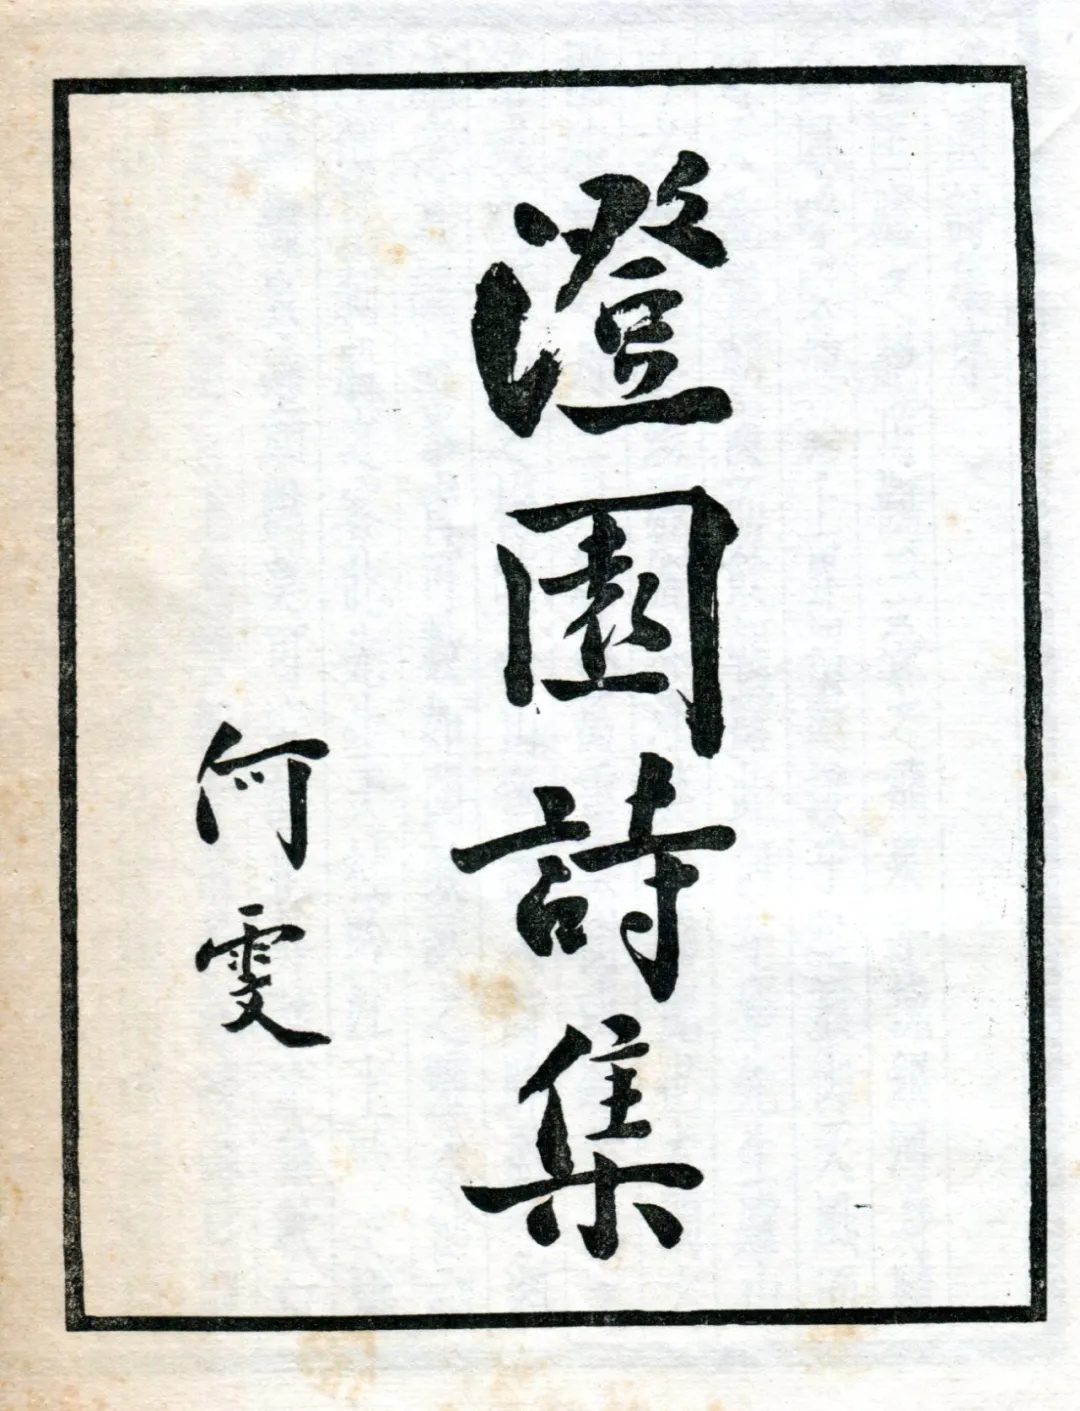 澄園詩集
何雯